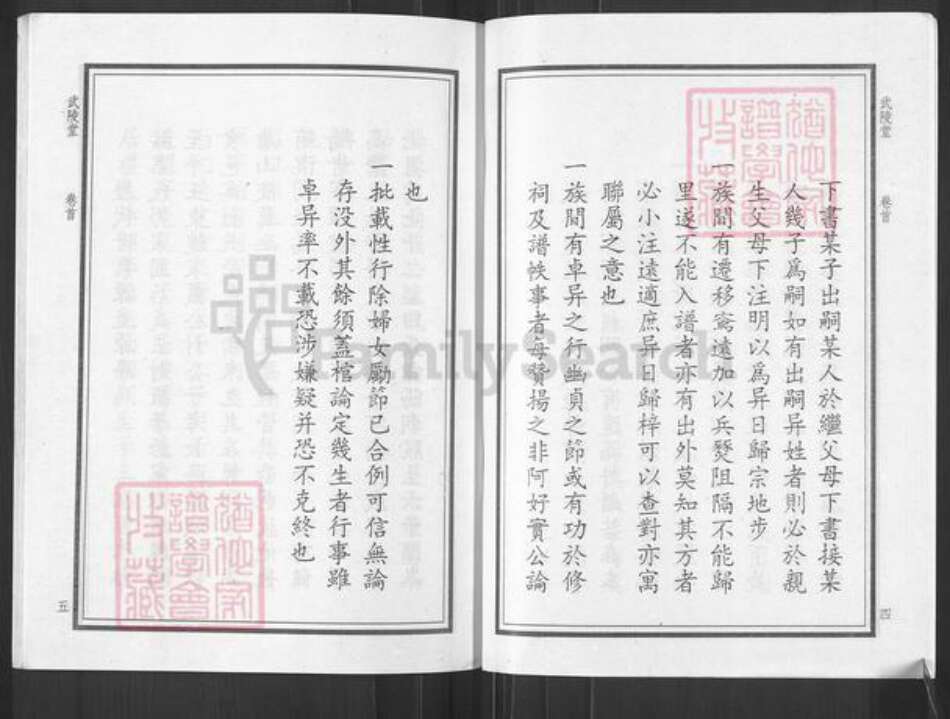 武陵堂
卷首
四
下書某子出嗣某人於繼父母下書接某
人幾子爲嗣如有出嗣异姓者則必於親
生父母下注明以爲异日歸宗地步
一族間有遷移窵遠加以兵燹阻隔不能歸
里遂不能入譜者亦有出外莫知其方者
必小注遠適庶异日歸梓可以查對亦寓
聯屬之意也
一族間有卓异之行幽貞之節或有功於修
祠及譜帙事者每贊揚之非阿好實公論
也
一批載性行除婦女勵節已合例可信無論
存没外其餘須蓋棺論定幾生者行事雖
卓异率不載恐涉嫌疑并恐不克終也
武陵堂
卷首
五
FamilySearch